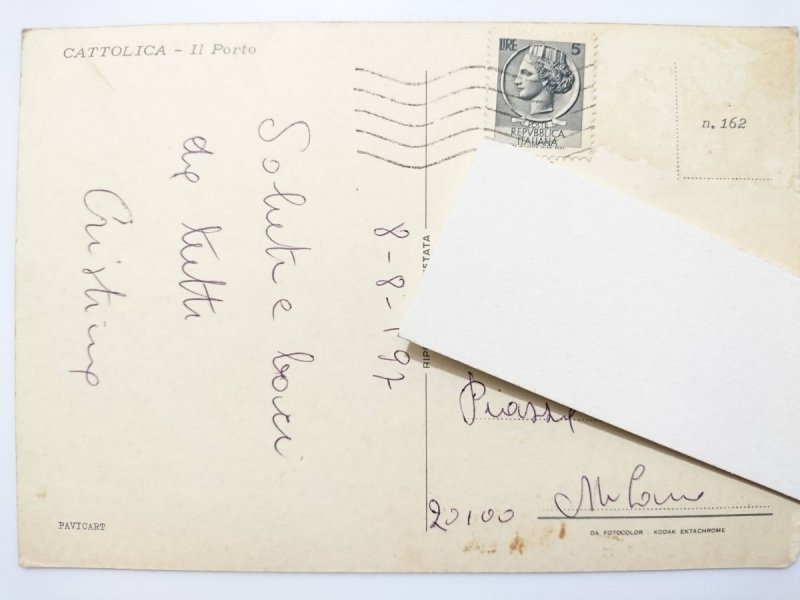 CATTOLICA - Il Porto
LIRE 5
POSTE
REPVBBLICA
ITALIANA
n. 162
8-8-197
Saluti e baci
da tutti
Cristina
Piazza
20100 Milano
PAVICART
DA FOTOCOLOR - KODAK EKTACHROME